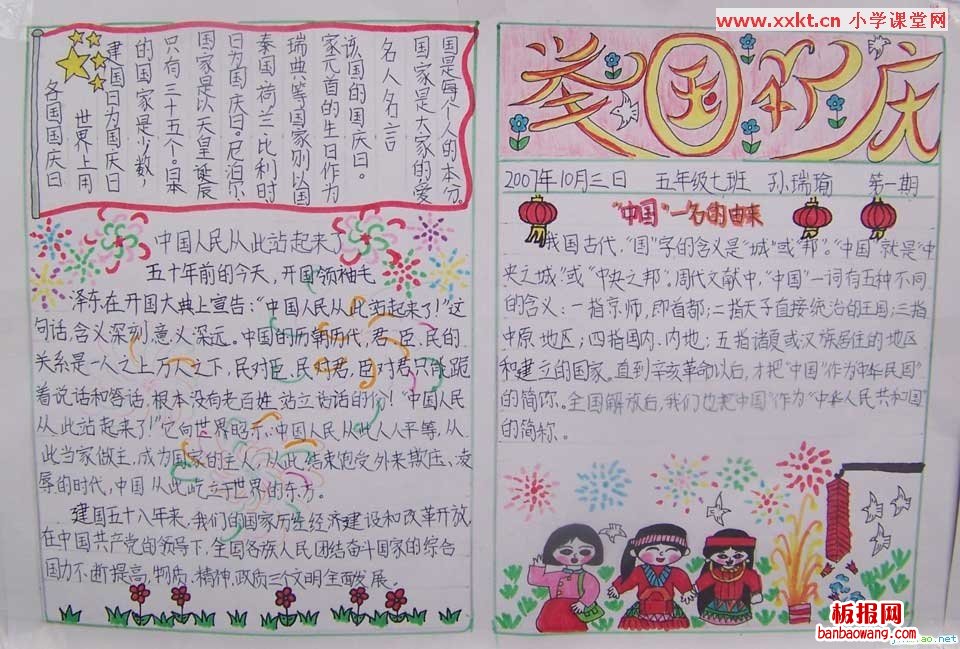 www.xxkt.cn 小学课堂网
各国国庆日
世界上用
建国日为国庆日
的国家是少数，
只有三十五个。日本
国家是以天皇诞辰
日为国庆日。尼泊尔、
泰国、荷兰、比利时
瑞典等国家则以国
家元首的生日作为
该国的国庆日。
名人名言
国家是大家的爱
国是每个人的本分。
中国人民从此站起来了
五十年前的今天，开国领袖毛
泽东在开国大典上宣告：“中国人民从此站起来了！”这
句话，含义深刻，意义深远。中国的历朝历代，君、臣、民的
关系是一人之上万人之下，民对臣、民对君，臣对君只能跪
着说话和答话，根本没有老百姓站立说话的份！“中国人民
从此站起来了！”它向世界昭示，中国人民从此人人平等，从
此当家做主，成为国家的主人，从此，结束饱受外来欺压、凌
辱的时代，中国从此屹立于世界的东方。
建国五十八年来，我们的国家历经经济建设和改革开放，
在中国共产党的领导下，全国各族人民团结奋斗国家的综合
国力不断提高，物质、精神、政质三个文明全面发展。
举国欢庆
2007年10月三日 五年级七班 孙瑞瑜 第一期
“中国”一名的由来
我国古代，“国”字的含义是“城”或“邦”。“中国”就是“中
央之城”或“中央之邦”。周代文献中，“中国”一词有五种不同
的含义：一指京师，即首都；二指天子直接统治的王国；三指
中原地区；四指国内、内地；五指诸夏或汉族居住的地区
和建立的国家。直到辛亥革命以后，才把“中国”作为“中华民国”
的简称。全国解放后，我们也把“中国”作为“中华人民共和国”
的简称。
板报网
banbaowang.com